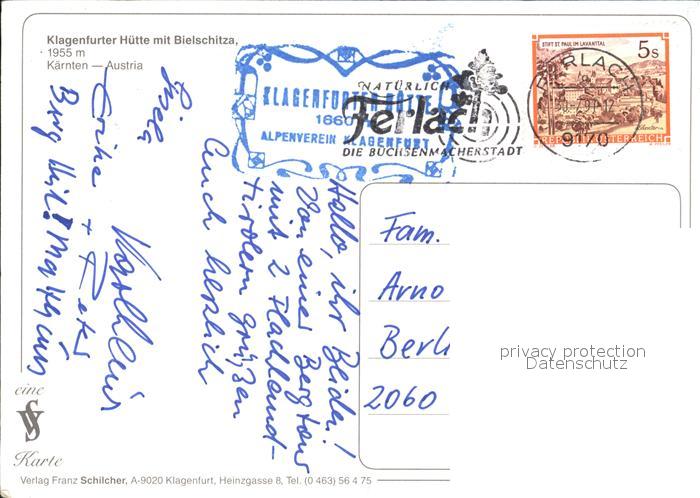 Klagenfurter Hütte mit Bielschitza,
1955 m
Kärnten — Austria
KLAGENFURTER HÜTTE
1660
ALPENVEREIN KLAGENFURT
NATÜRLICH
Ferlach
DIE BÜCHSENMACHERSTADT
STIFT ST. PAUL IM LAVANTTAL
5 S
REPUBLIK ÖSTERREICH
FERLACH
9170
Hallo, ihr Beide!
Von einer Bergtour
mit 2 Flachland-
tirolern grüßen
Euch herzlich
Karlheinz
+ Peter
Berg Heil! Matthäus
Fam.
Arno
Berli
2060
privacy protection
Datenschutz
eine
VS
Karte
Verlag Franz Schilcher, A-9020 Klagenfurt, Heinzgasse 8, Tel. (0 463) 56 4 75